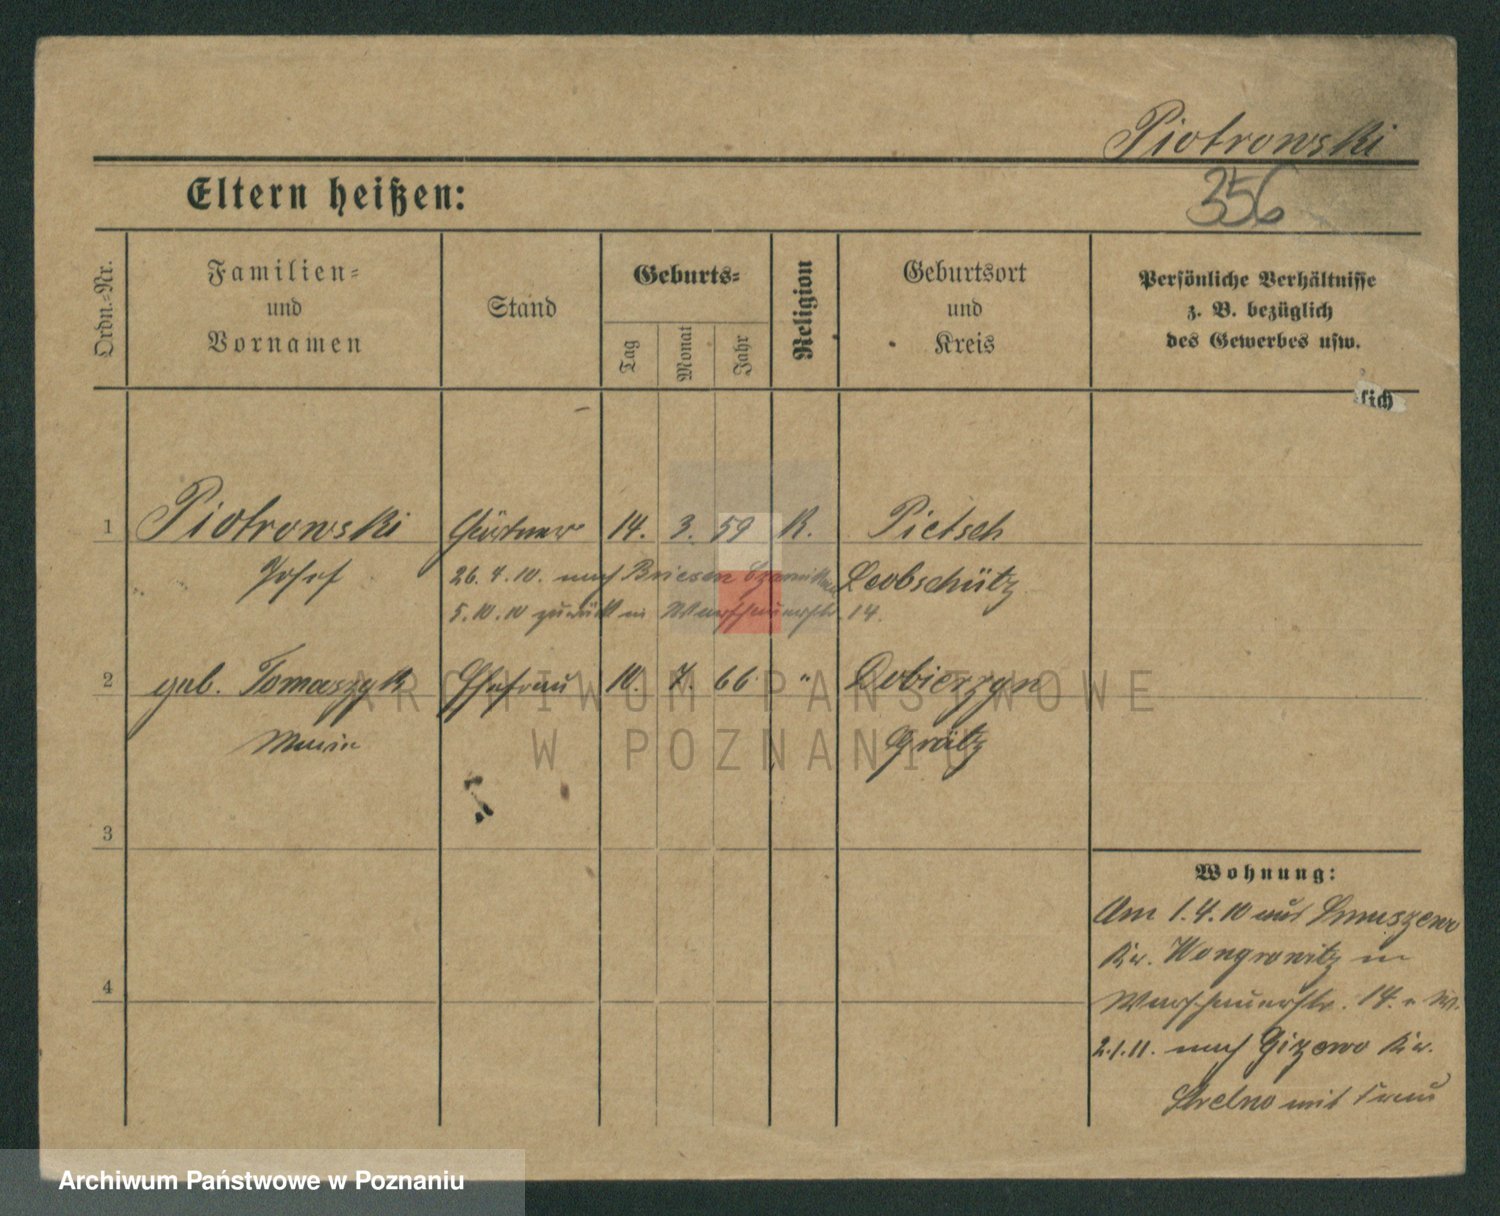 Piotrowski
356
Eltern heißen:
Ordn.=Nr.
Familien=
und
Vornamen
Stand
Geburts=
Tag
Monat
Jahr
Religion
Geburtsort
und
Kreis
Persönliche Verhältnisse
z. B. bezüglich
des Gewerbes usw.
lich
1 Piotrowski Gärtner 14. 3. 59 K. Pietsch
Josef 26. 4. 10. nach Briesen Czarnikau Leobschütz
5. 10. 10 zurück in Warschauerstr. 14.
2 geb. Tomaszyk Ehefrau 10. 7. 66 " Dobierzyn
Marie Grätz
3
4
Wohnung:
Am 1. 4. 10 aus
Kr. Wongrowitz in
Warschauerstr. 14.
2. 1. 11. nach Gizewo Kr.
Strelno mit Frau
ARCHIWUM PAŃSTWOWE
W POZNANIU
Archiwum Państwowe w Poznaniu